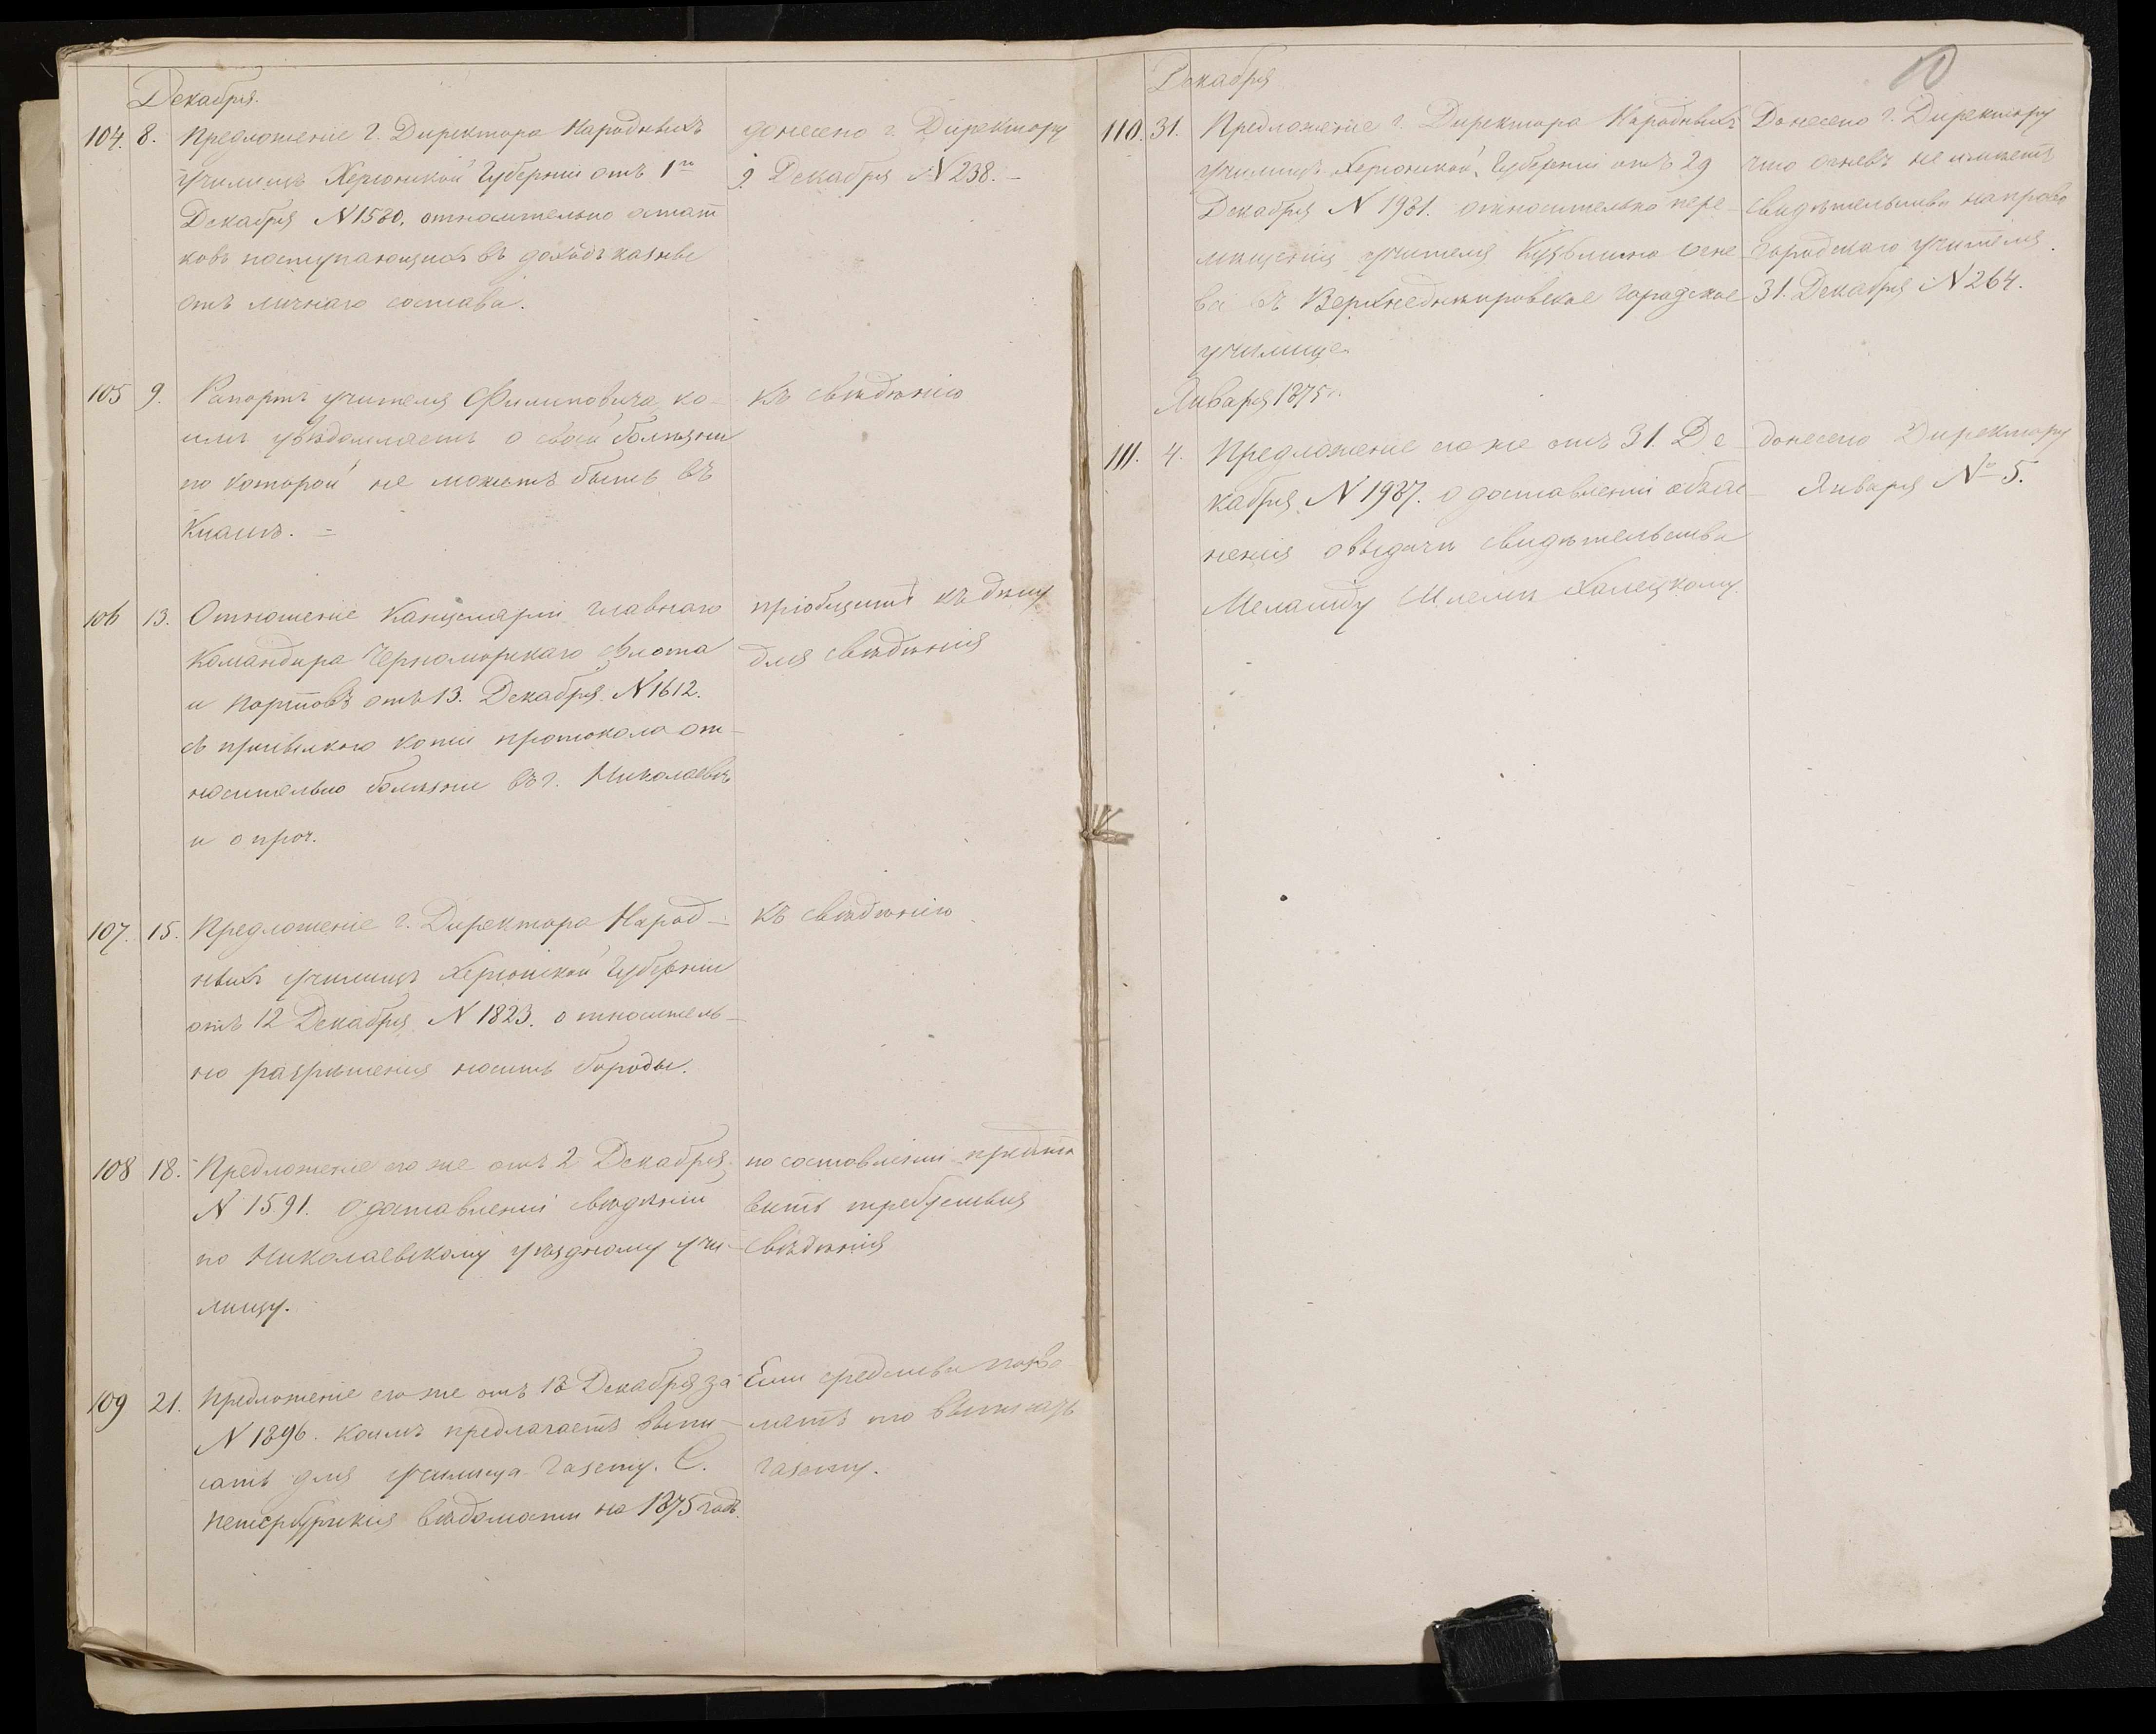 Декабря.
104. 8. Предложеніе г. Директора Народныхъ
училищъ Херсонской Губерніи отъ 1го
Декабря N 1580, относительно остат
ковъ поступающихъ въ доходъ казны
отъ личнаго состава.
донесено г. Директору
9 Декабря N 238. –
105 9. Рапортъ учителя Филиповича ко-
имъ увѣдомляетъ о своей болѣзни
по которой не можетъ быть въ
Классѣ. =
къ свѣдѣнію
106 13. Отношеніе Канцеляріи главнаго
Командира Черноморскаго флота
и портовъ отъ 13. Декабря N 1612.
съ присылкою копіи протокола от-
носительно болѣзни въ г. Николаевѣ
и о проч.
пріобщить къ дѣлу
для свѣдѣнія
107. 15. Предложеніе г. Директора Народ-
ныхъ училищъ Херсонской Губерніи
отъ 12 Декабря N 1823. относитель-
но разрѣшенія носить бороды.
къ свѣдѣнію
108 18. Предложеніе его же отъ 2 Декабря
N 1591. о доставленіи свѣдѣній
по Николаевскому уѣздному учи-
лищу.
по составленіи предста
вить требуемыя
свѣдѣнія
109 21. Предложеніе его же отъ 18 Декабря за
N 1896. коимъ предлагаетъ выпи-
сать для училища газету. С.
петербургскія вѣдомости на 1875 годъ.
Если средства позво
лятъ то выписать
газету.
10
Декабря
110. 31. Предложеніе г. Директора Народныхъ
училищъ Херсонской Губерніи отъ 29
Декабря N 1931. относительно пере-
мѣщенія учителя Кузьмина Огне
ва въ Верхнеднѣпровское городское
училище.
Донесено г. Директору
что Огневъ не имѣетъ
свидѣтельства на право
городскаго учителя.
31. Декабря N 264.
Января 1875 г.
111. 4. Предложеніе его же отъ 31. Де
кабря N 1937. о доставленіи объяс
ненія о выдачи свидѣтельства
Меламду Халецкому.
донесено Директору
Января № 5.